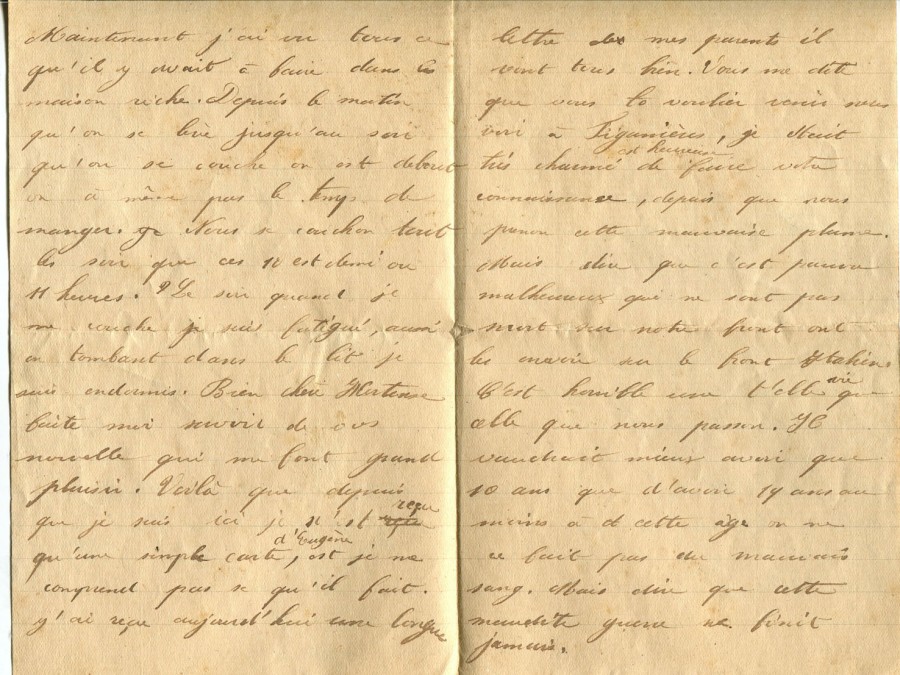 Maintenant j'ai vu tous ce
qu'il y avait à faire dans les
maison riche. Depuis le matin
qu'on se lève jusqu'au soir
qu'on se couche on est debout
on à même pas le temps de
manger. Nous se couchon tout
les soir que ces 10 est demi ou
11 heures. Le soir quand je
me couche je suis fatigué, aussi
en tombant dans le lit je
suis endormis. Bien chère Hortense
faite moi savoir de vos
nouvelle qui me font grand
plaisir. Voilà que depuis
que je suis ici je n'est reçu
qu'une simple carte d'Eugène, est je ne
comprend pas se qu'il fait.
j'ai reçue aujourd'hui une longue
lettre de mes parents il
vont tous bien. Vous me dite
que vous voulier venir nous
voir à Figanières, je était
très charmé est heureuse de faire votre
connaissance, depuis que nous
parlon cette mauvaise plume.
Mais dire que c'est pauvre
malheureux qui ne sont pas
mort sur notre front ont
les envoie sur le front Italien.
C'est horrible une t'elle vie que
celle que nous passon. Il
vaudrait mieux avoir que
10 ans que d'avoir 19 ans au
moins à cette âge on ne
ce fait pas du mauvais
sang. Mais dire que cette
maudite guerre ne finit
jamais.